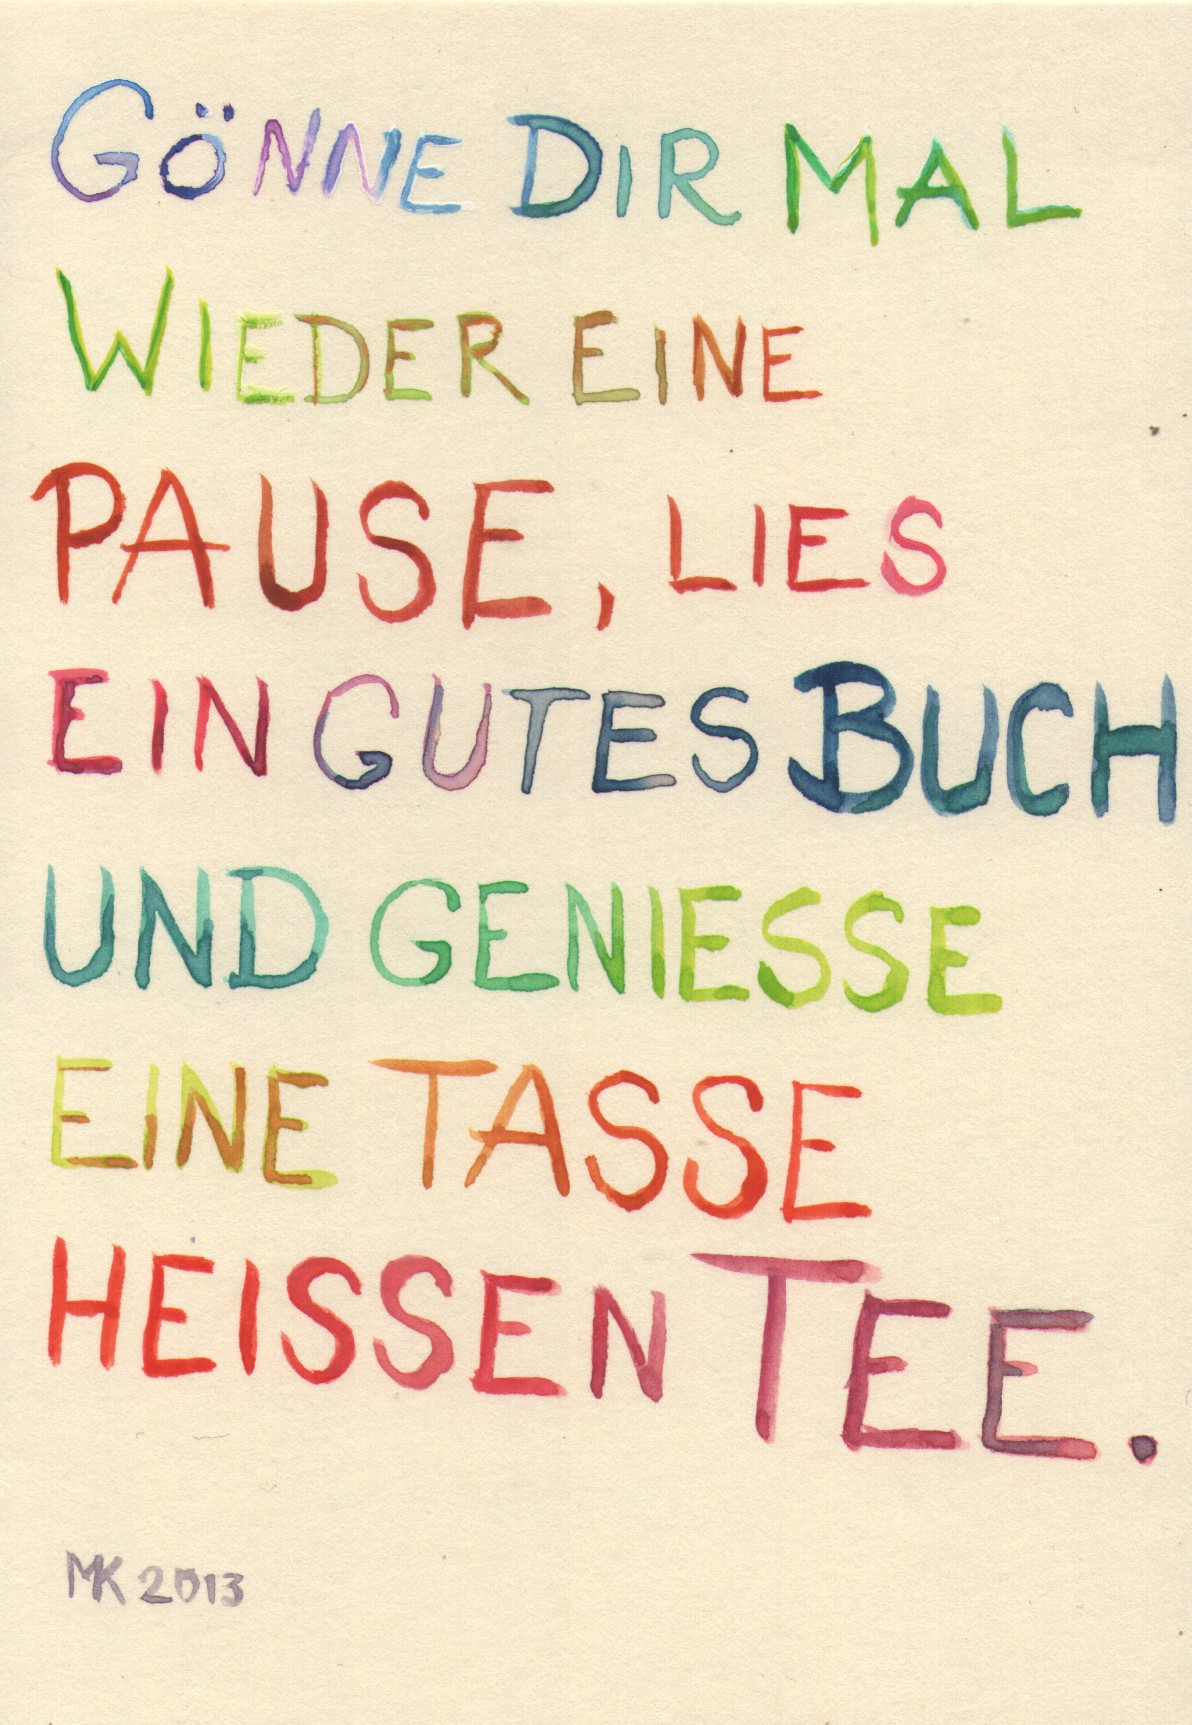 GÖNNE DIR MAL
WIEDER EINE
PAUSE, LIES
EIN GUTES BUCH
UND GENIESSE
EINE TASSE
HEISSEN TEE.
MK 2013